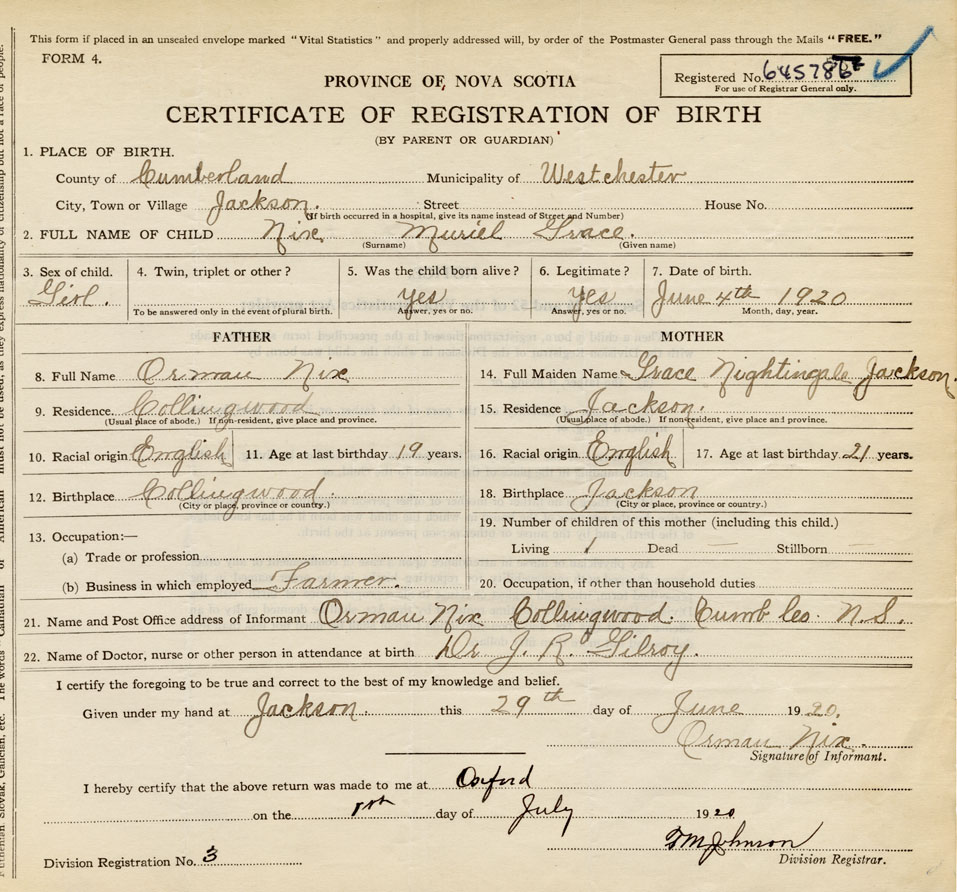 This form if placed in an unsealed envelope marked "Vital Statistics" and properly addressed will, by order of the Postmaster General pass through the Mails "FREE."
FORM 4.
Registered No. 645786
For use of Registrar General only.
PROVINCE OF NOVA SCOTIA
CERTIFICATE OF REGISTRATION OF BIRTH
(BY PARENT OR GUARDIAN)
1. PLACE OF BIRTH.
County of Cumberland Municipality of Westchester
City, Town or Village Jackson. Street House No.
(If birth occurred in a hospital, give its name instead of Street and Number)
2. FULL NAME OF CHILD Nix Muriel Grace.
(Surname) (Given name)
3. Sex of child. 4. Twin, triplet or other? 5. Was the child born alive? 6. Legitimate? 7. Date of birth.
Girl. yes yes June 4th 1920
To be answered only in the event of plural birth. Answer, yes or no. Answer, yes or no. Month, day, year.
FATHER MOTHER
8. Full Name Orman Nix 14. Full Maiden Name Grace Nightingale Jackson.
9. Residence. Collingwood 15. Residence Jackson.
(Usual place of abode.) If non-resident, give place and province. (Usual place of abode.) If non-resident, give place and province.
10. Racial origin English 11. Age at last birthday 19 years. 16. Racial origin English 17. Age at last birthday 21 years.
12. Birthplace Collingwood. 18. Birthplace Jackson
(City or place, province or country.) (City or place, province or country.)
13. Occupation:— 19. Number of children of this mother (including this child.)
(a) Trade or profession Living 1 Dead — Stillborn —
(b) Business in which employed Farmer. 20. Occupation, if other than household duties
21. Name and Post Office address of Informant Orman Nix Collingwood. Cumb Co. N.S.
22. Name of Doctor, nurse or other person in attendance at birth Dr J. R. Gilroy.
I certify the foregoing to be true and correct to the best of my knowledge and belief.
Given under my hand at Jackson. this 29th day of June 1920.
Orman Nix.
Signature of Informant.
I hereby certify that the above return was made to me at Oxford
on the 1st day of July 1920
Division Registration No. 3 Johnson
Division Registrar.